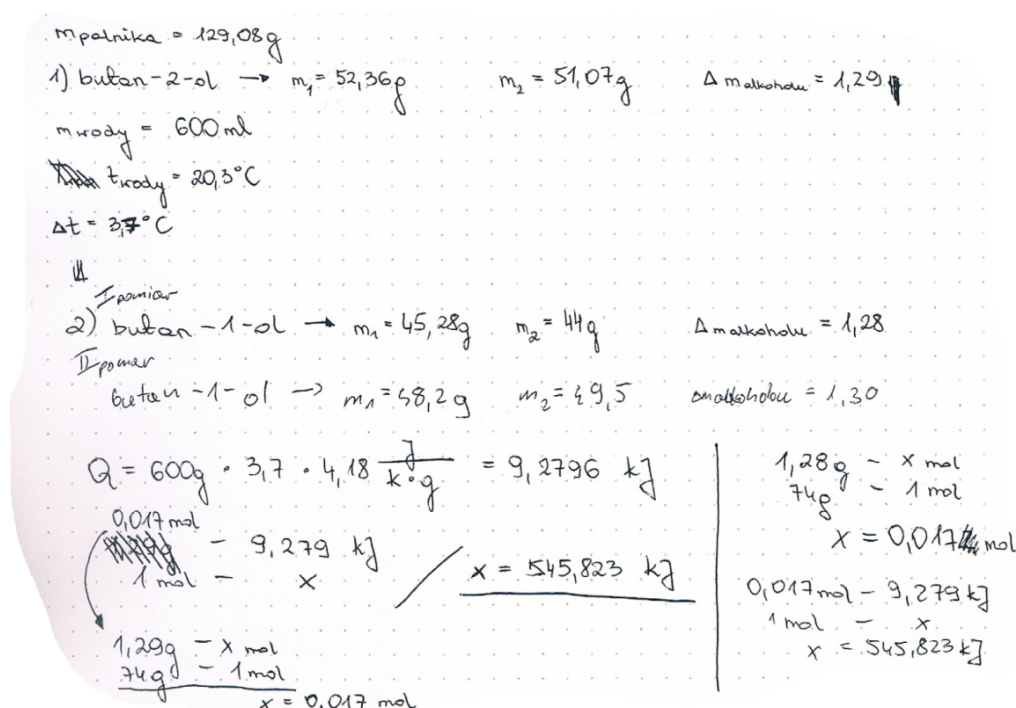 m palnika = 129,08g
1) butan-2-ol → m₁ = 52,36g m₂ = 51,07g Δ m alkoholu = 1,29
m wody = 600 ml
t wody = 20,3°C
Δt = 3,7°C
I pomiar
2) butan-1-ol → m₁ = 45,28g m₂ = 44g Δ m alkoholu = 1,28
II pomiar
butan-1-ol → m₁ = 48,2g m₂ = 49,5 Δmalkoholu = 1,30
Q = 600g · 3,7 · 4,18 J/K·g = 9,2796 kJ
0,017 mol – 9,279 kJ
1 mol – x
x = 545,823 kJ
1,29g – x mol
74g – 1 mol
x = 0,017 mol
1,28g – x mol
74g – 1 mol
x = 0,017 mol
0,017 mol – 9,279 kJ
1 mol – x
x = 545,823 kJ